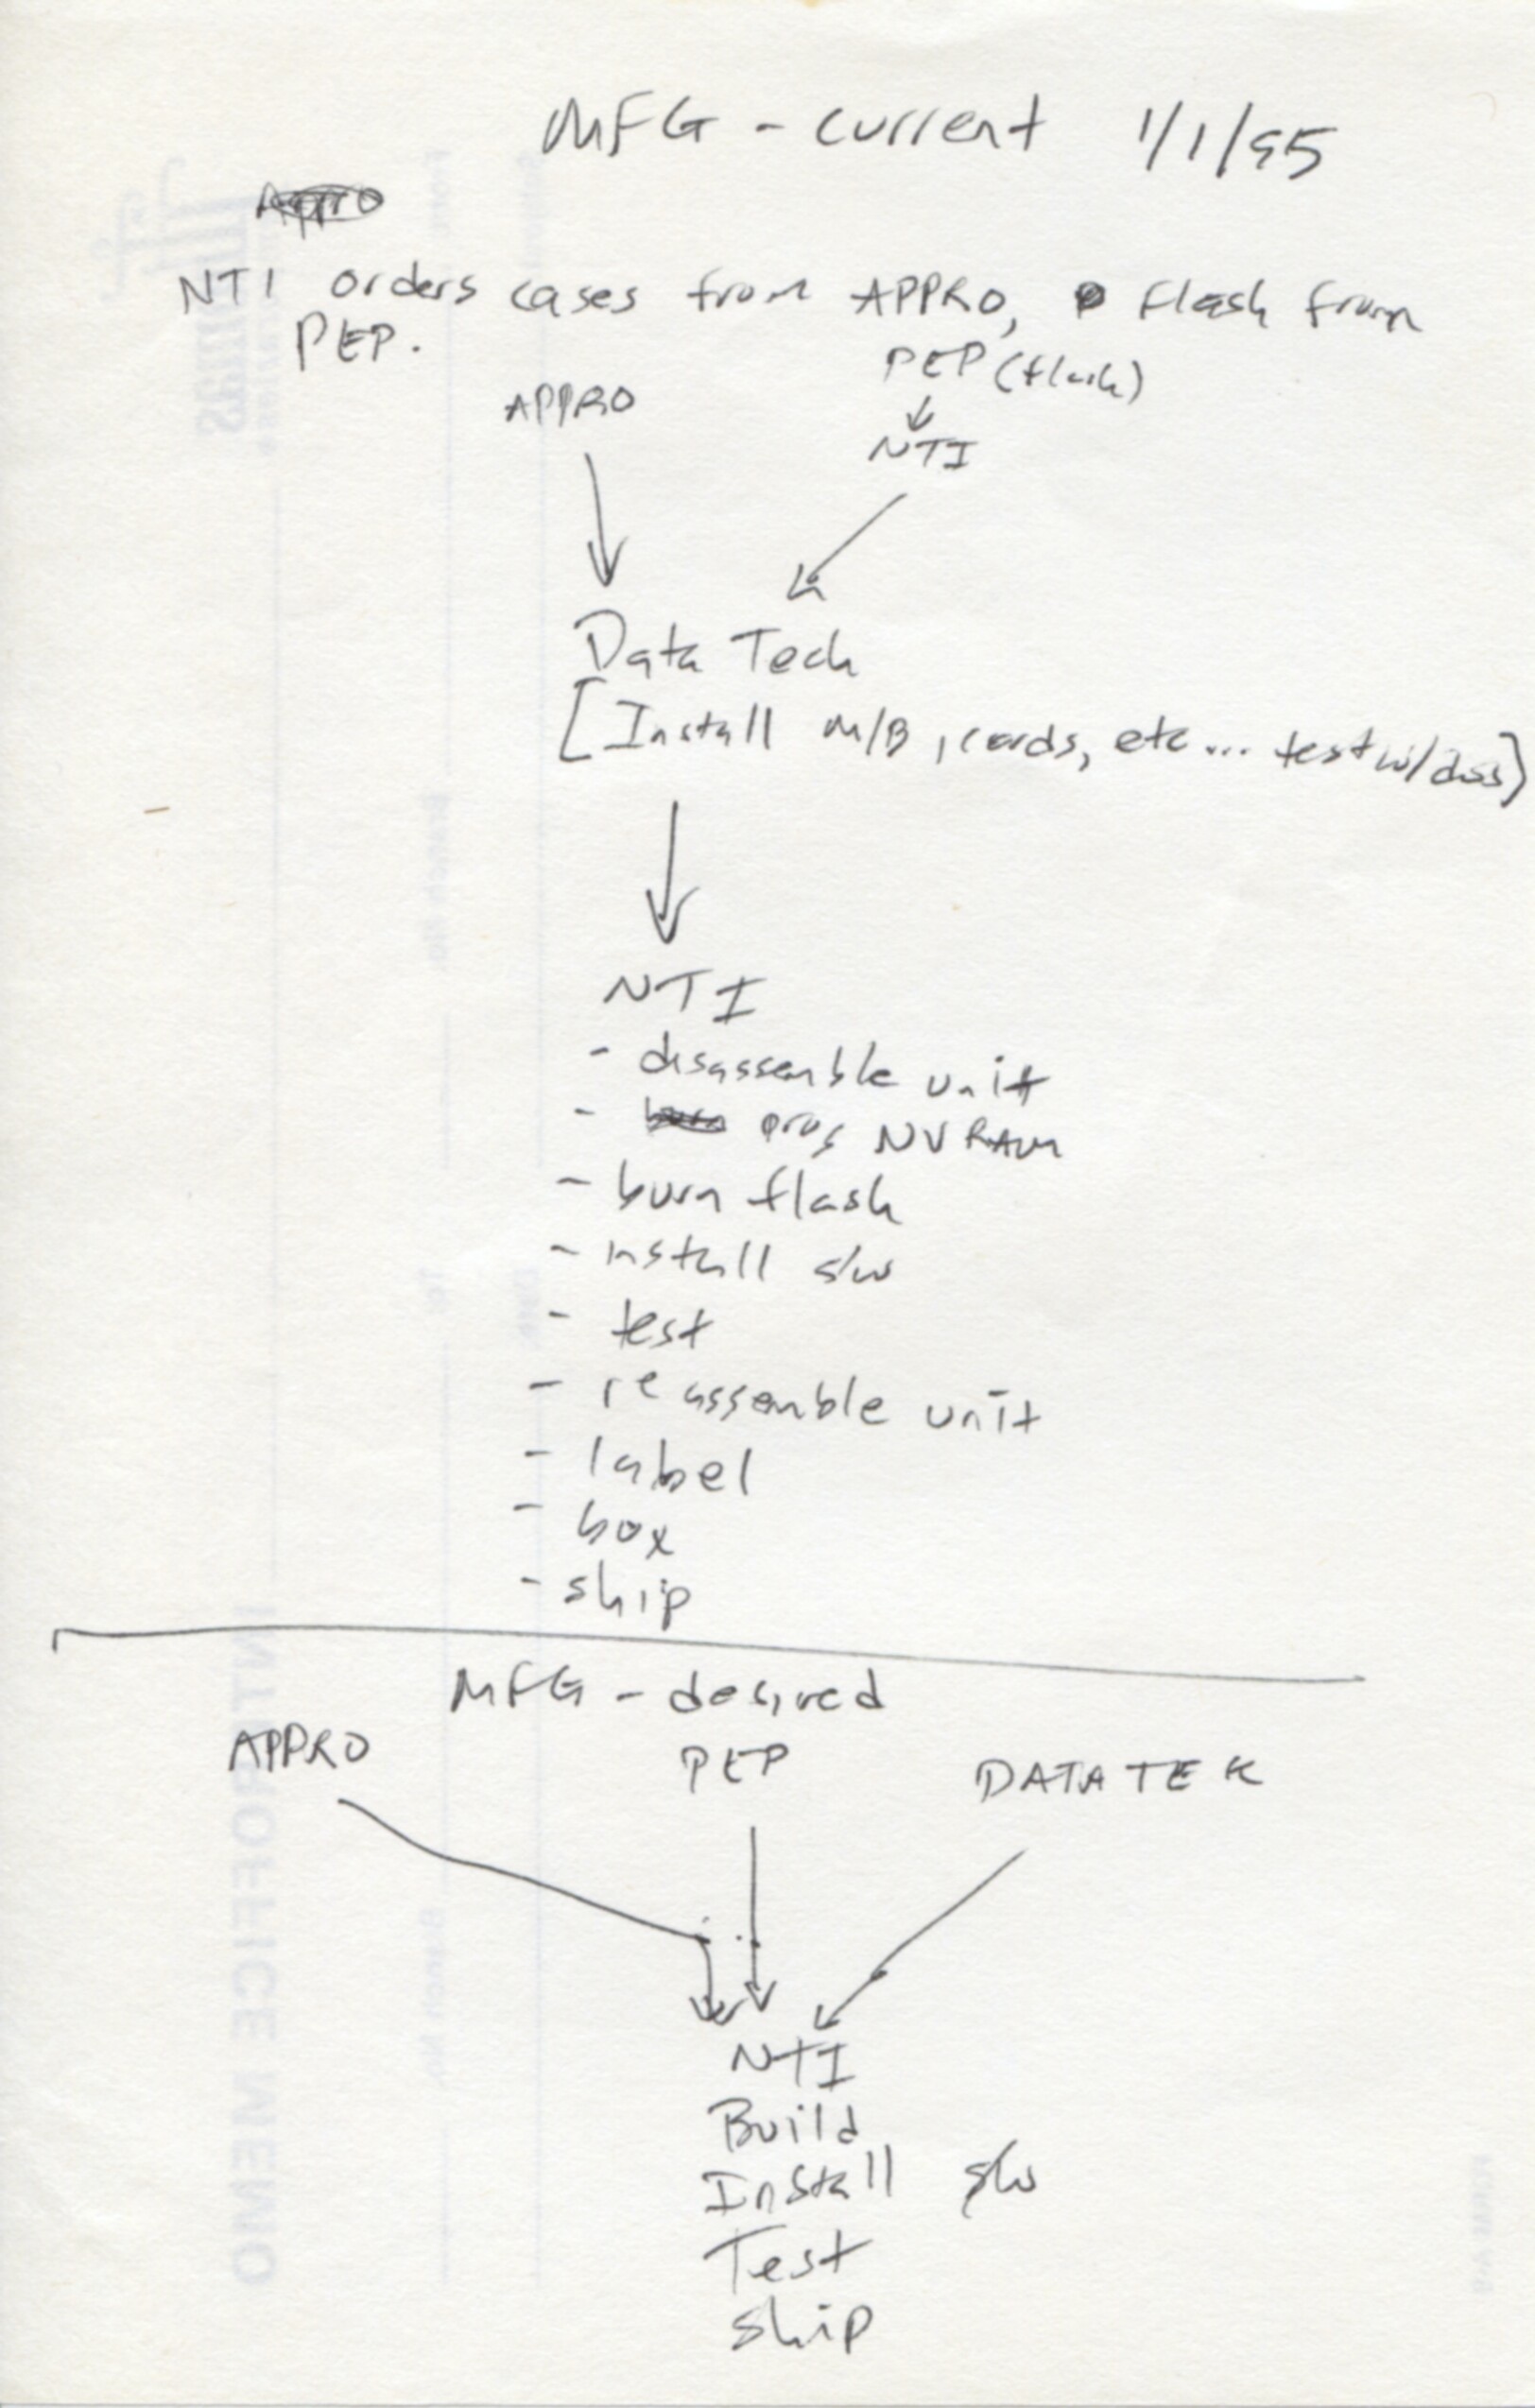 MFG - current 1/1/95
Appro
NTI orders cases from APPRO, flash from
PEP.
PEP (flash)
APPRO
NTI
Data Tech
[Install M/B, cards, etc... test w/dos]
NTI
- disassemble unit
- burn prog NVRAM
- burn flash
- install s/w
- test
- reassemble unit
- label
- box
- ship
MFG - desired
APPRO PEP DATATEK
NTI
Build
Install s/w
Test
ship
INTEROFFICE MEMO